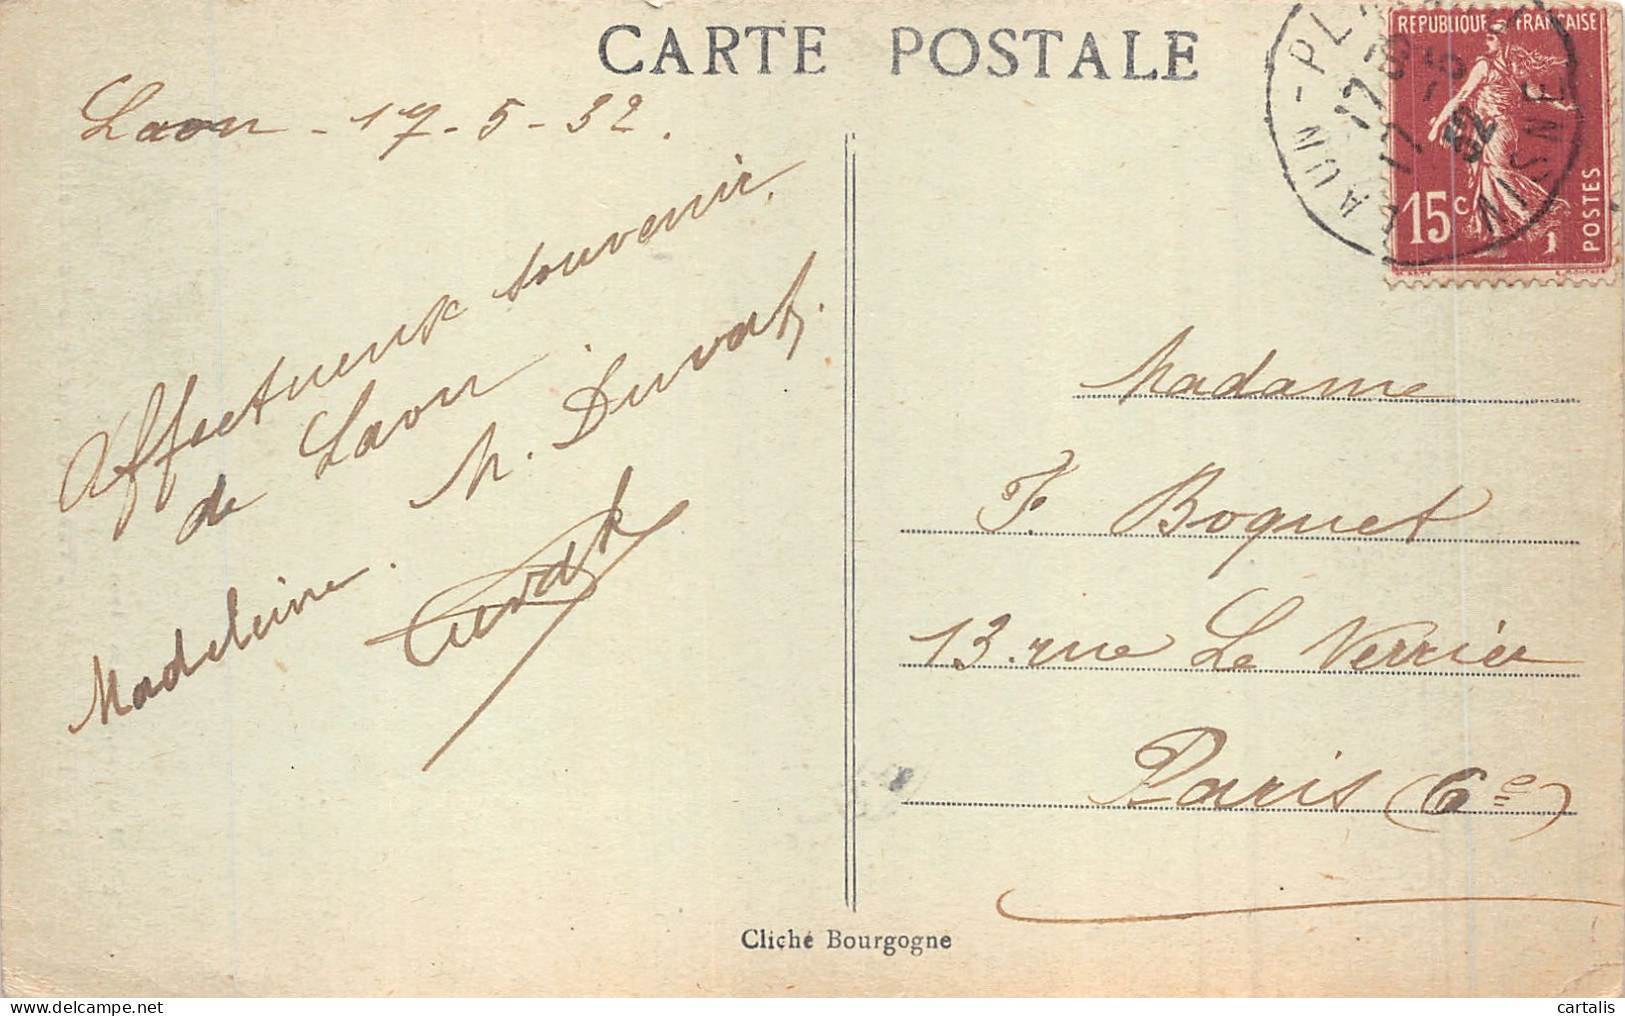 CARTE POSTALE
Laon - 17-5-32.
Affectueux souvenir
de Laon.
M. Duval.
Madeleine.
Madame
F. Boquet
13. rue Le Verrier
Paris (6e)
REPUBLIQUE FRANCAISE
15c
POSTES
LAON - PL
17 -5
32
AISNE
Cliché Bourgogne
cartalis